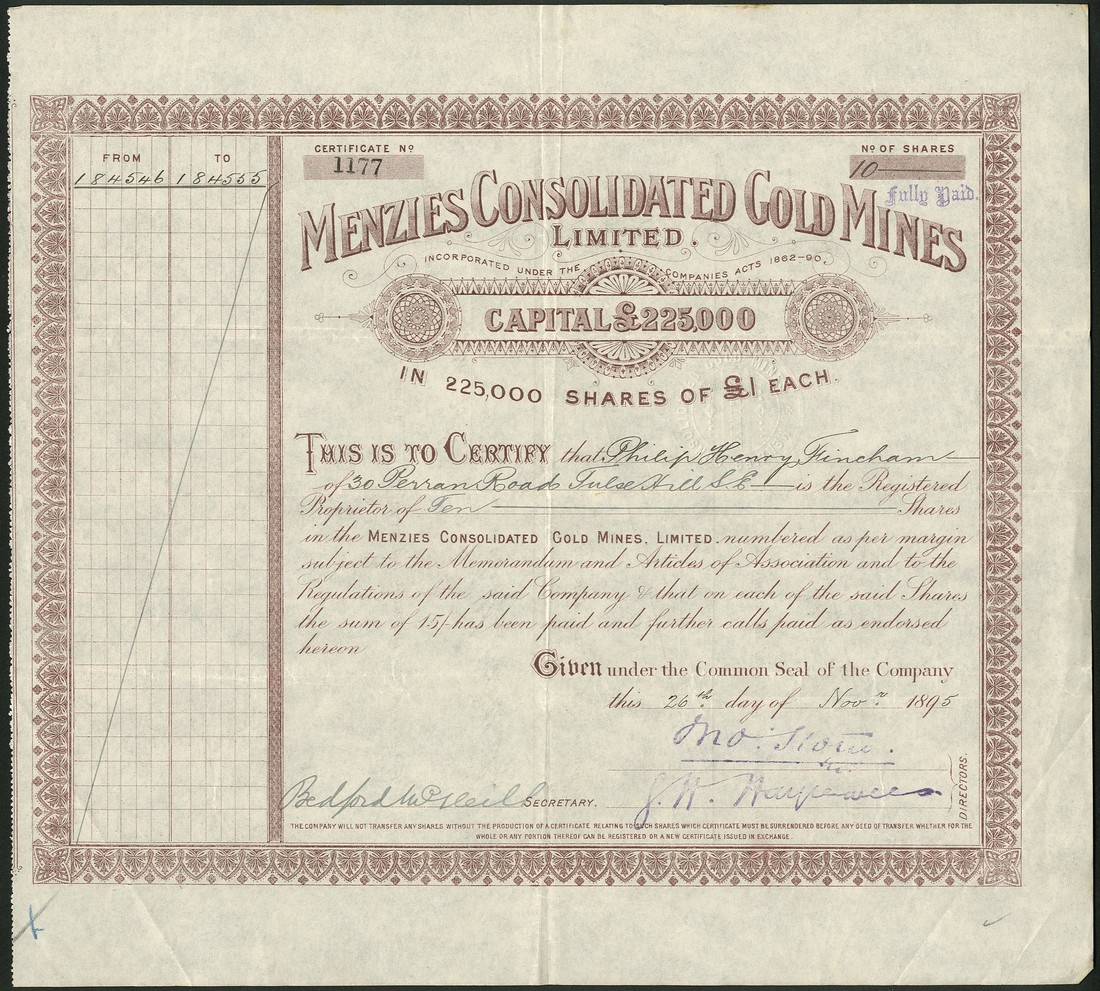 FROM TO
184546 184555
CERTIFICATE Nº
1177
Nº OF SHARES
10
Fully Paid.
MENZIES CONSOLIDATED GOLD MINES
LIMITED.
INCORPORATED UNDER THE COMPANIES ACTS 1862-90.
CAPITAL £225,000
IN 225,000 SHARES OF £1 EACH.
THIS IS TO CERTIFY that Philip Henry Fincham
of 30 Perran Road Tulse Hill S.E is the Registered
Proprietor of Ten Shares
in the MENZIES CONSOLIDATED GOLD MINES, LIMITED. numbered as per margin
subject to the Memorandum and Articles of Association and to the
Regulations of the said Company & that on each of the said Shares
the sum of 15/- has been paid and further calls paid as endorsed
hereon
Given under the Common Seal of the Company
this 26th day of Novr 1895
Bedford McNeill SECRETARY.
J. W.
DIRECTORS.
THE COMPANY WILL NOT TRANSFER ANY SHARES WITHOUT THE PRODUCTION OF A CERTIFICATE RELATING TO SUCH SHARES WHICH CERTIFICATE MUST BE SURRENDERED BEFORE ANY DEED OF TRANSFER WHETHER FOR THE
WHOLE OR ANY PORTION THEREOF CAN BE REGISTERED OR A NEW CERTIFICATE ISSUED IN EXCHANGE.